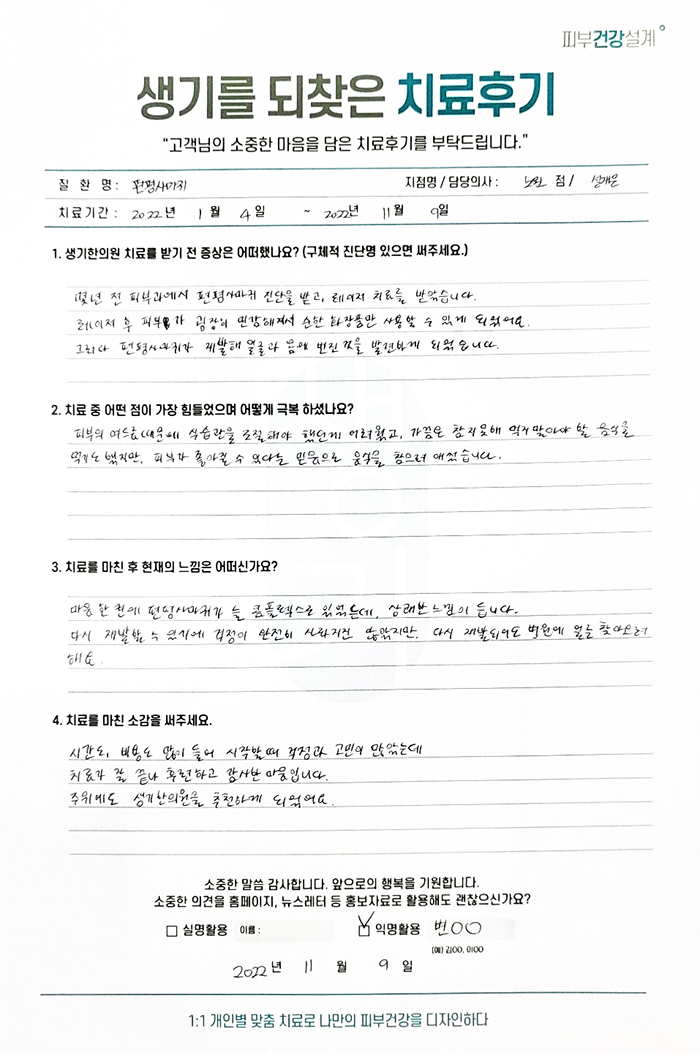 피부건강설계
생기를 되찾은 치료후기
"고객님의 소중한 마음을 담은 치료후기를 부탁드립니다."
질 환 명 : 편평사마귀 지점명 / 담당의사 : 노원 점 /
치료기간 : 2022년 1월 4일 ~ 2022년 11월 9일
1. 생기한의원 치료를 받기 전 증상은 어떠했나요? (구체적 진단명 있으면 써주세요.)
몇년 전 피부과에서 편평사마귀 진단을 받고, 레이저 치료를 받았습니다.
레이저 후 피부가 굉장히 민감해져서 순한 화장품만 사용할 수 있게 되었어요.
그러다 편평사마귀가 재발해 얼굴과 몸에 번진 것을 발견하게 되었습니다.
2. 치료 중 어떤 점이 가장 힘들었으며 어떻게 극복 하셨나요?
피부의 여드름때문에 식습관을 조절해야 했던게 어려웠고, 가끔은 참지못해 먹지말아야 할 음식을
먹기도 했지만, 피부가 좋아질 수 있다는 믿음으로 음식을 참으려 애썼습니다.
3. 치료를 마친 후 현재의 느낌은 어떠신가요?
마음 한 켠에 편평사마귀가 늘 콤플렉스로 있었는데, 상쾌한 느낌이 듭니다.
다시 재발할 수 있기에 걱정이 완전히 사라지진 않았지만, 다시 재발되어도 병원에 얼른 찾아오려
해요.
4. 치료를 마친 소감을 써주세요.
시간도, 비용도 많이 들어 시작할때 걱정과 고민이 많았는데
치료가 잘 끝나 후련하고 감사한 마음입니다.
주위에도 생기한의원을 추천하게 되었어요.
소중한 말씀 감사합니다. 앞으로의 행복을 기원합니다.
소중한 의견을 홈페이지, 뉴스레터 등 홍보자료로 활용해도 괜찮으신가요?
실명활용 이름 : 익명활용 변OO
(예) 김OO, 이OO
2022년 11월 9일
1:1 개인별 맞춤 치료로 나만의 피부건강을 디자인하다